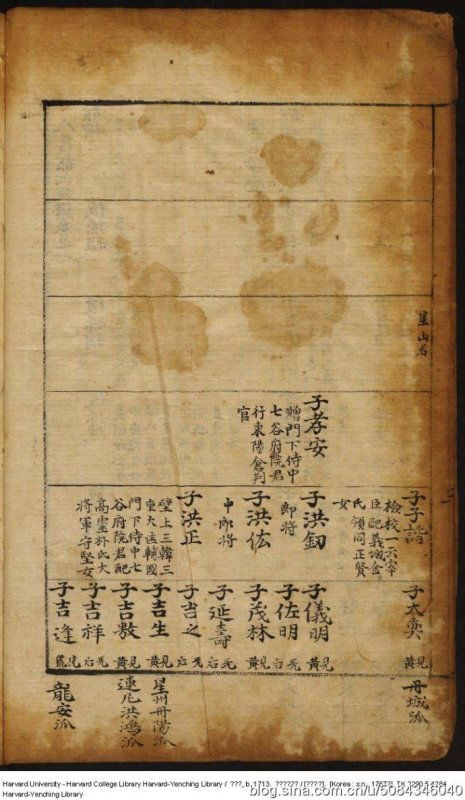 星山君
子孝安
贈門下侍中
七谷府院君
行東陽倉判
官
子子諧
檢校一六宰
臣配義城金
氏領同正賢
女
子洪釰
郎將
子洪佐
中郎將
子洪正
壁上三韓三
重大匡輔國
門下侍中七
谷府院君配
高霊朴氏大
將軍守堅女
子大奐
見黄
子儀明
見黄
子佐明
見右
子茂林
見黄
子延壽
見右
子吉之
見右
子吉生
見黄
子吉敷
見黄
子吉祥
見右
子吉逢
見荒
丹城派
星州丹陽派
連凡洪鴻派
龍安派
Harvard University - Harvard College Library Harvard-Yenching Library / ???, b. 1713. ?????? / [????]. [Korea : s.n., 176?]?. TK 2290.5 4284
Harvard-Yenching Library
blog.sina.com.cn/u/5084346040